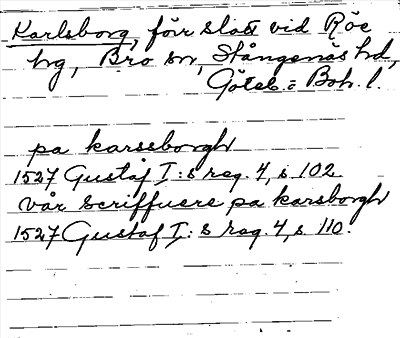 Karlsborg, förr slott vid Röe
hg, Bro sn, Stångenäs hd,
Göteb. = Boh. l.
pa karssborgh
1527 Gustaf I:s reg. 4, s. 102.
vår scriffuere pa karsborgh
1527 Gustaf I:s reg. 4, s. 110.